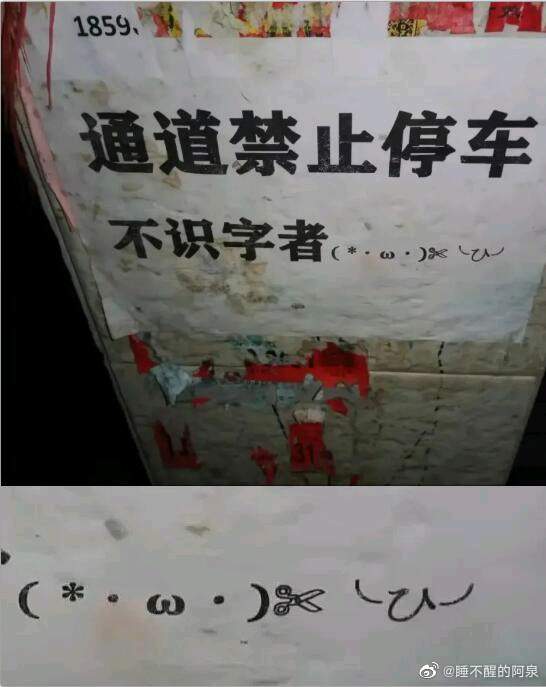 1859、
通道禁止停车
不识字者(*・ω・)✄╰ひ╯
31
(*・ω・)✄╰ひ╯
@睡不醒的阿泉